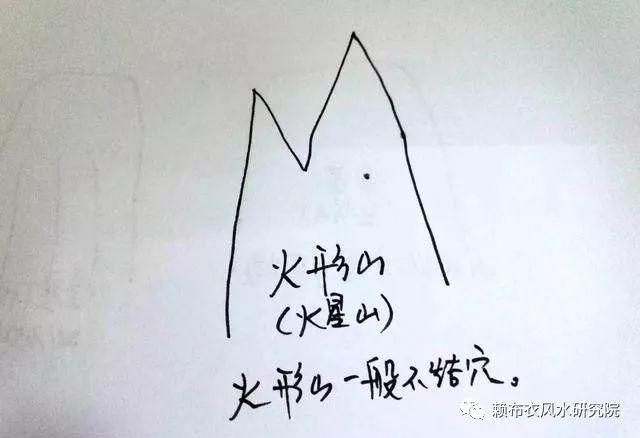 火形山
(火星山)
火形山一般不结穴。
赖布衣风水研究院